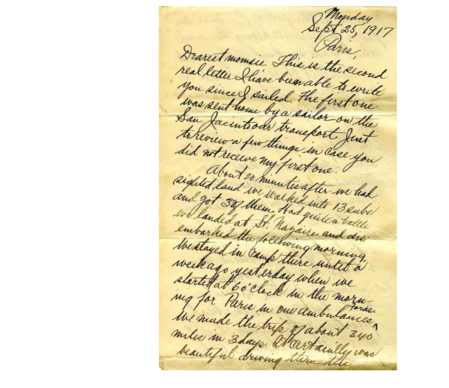 Monday
Sept 25, 1917
Paris,
Dearest momsie This is the second
real letter I have been able to write
you since I sailed. The first one
was sent home by a sailor on the
San Jacinto our transport. Just
to review a few things in case you
did not receive my first one.
About 20 minutes after we had
sighted land we walked into 13 subs
and got 3 of them. Had quite a battle
we landed at St. Nazaire and dis
embarked the following morning.
We stayed in camp there until a
week ago yesterday when we
started at 6 o'clock in the morn-
ing for Paris in our Fords ambulances
we made the trip of about 340
miles in 3 days. It certainly was
beautiful driving thru the